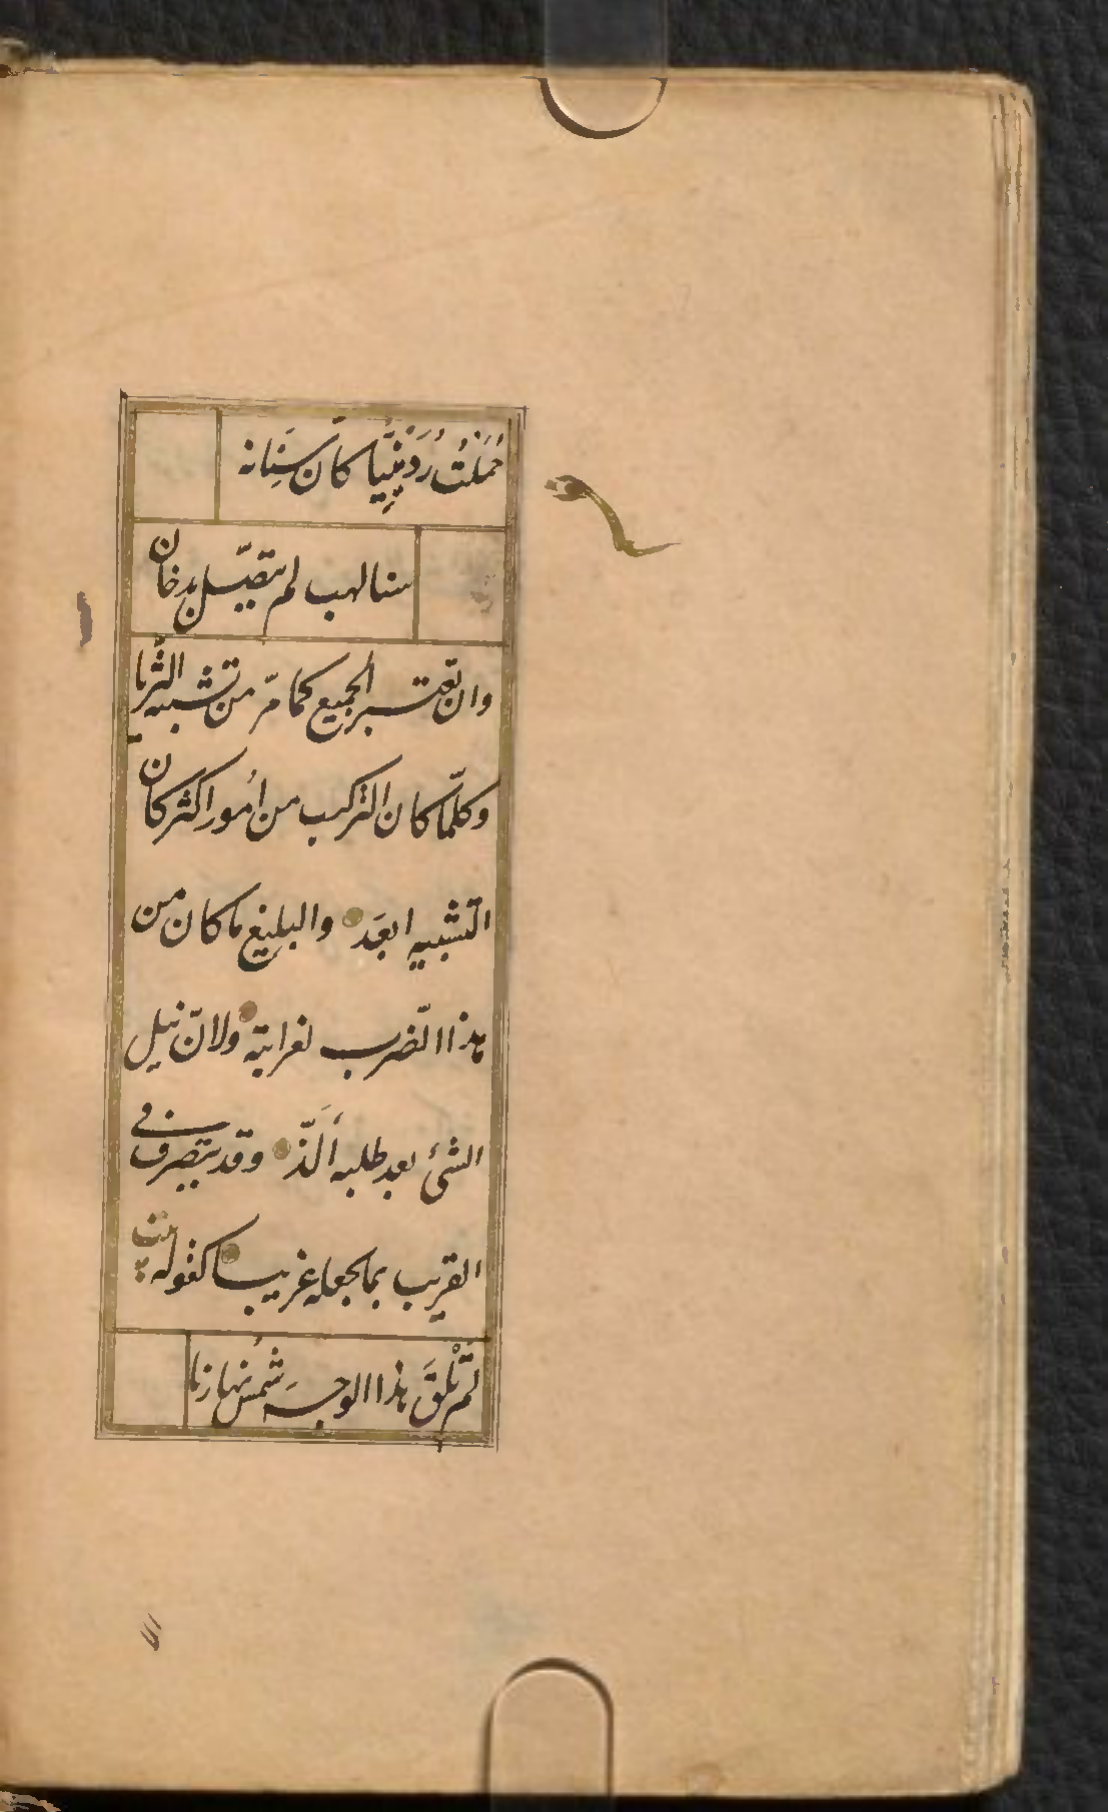 حملت ردينيا كان سنانه
سنا لهب لم يتصل بدخان
وان تعتبر الجميع كما مرّ من تشبيه الثريا
وكلّما كان التركيب من اُمور اكثر كان
التشبيه ابعَد والبليغ ما كان من
هذا الضرب لغرابته ولانّ نيل
الشئ بعد طلبه اَلَذّ وقد يتصرف فى
القريب بما يجعله غريبا كقوله
لم تَلْقَ هذا الوجهَ شمسُ نهارنا